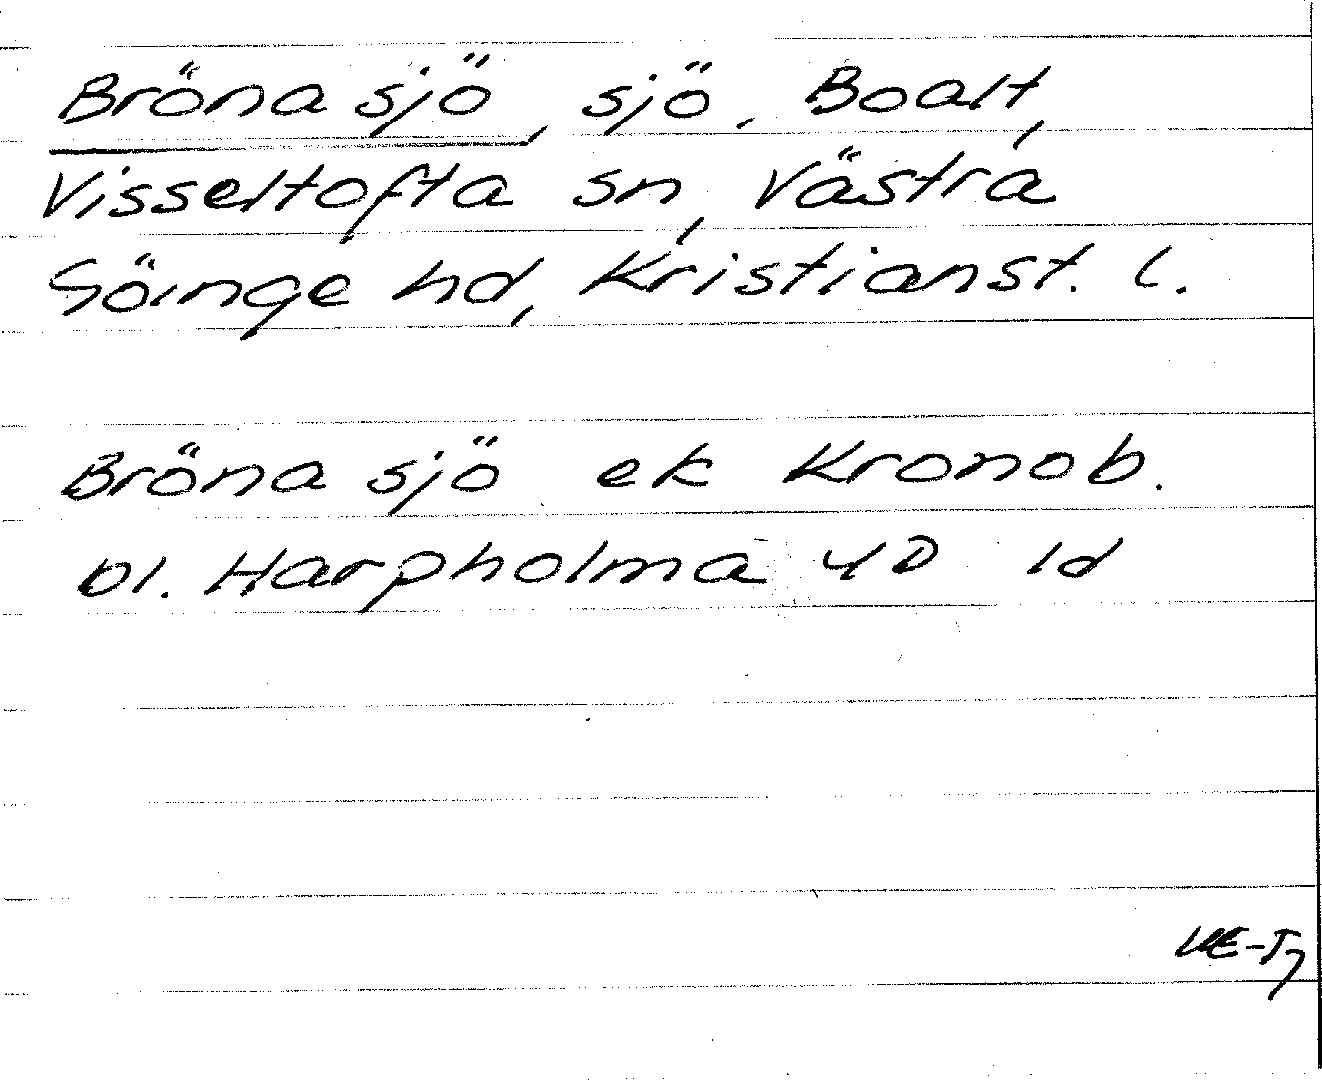 Bröna sjö, sjö, Boalt,
Visseltofta sn, Västra
Göinge hd, Kristianst. l.
Bröna sjö ek Kronob.
bl. Harpholma 4D 1d